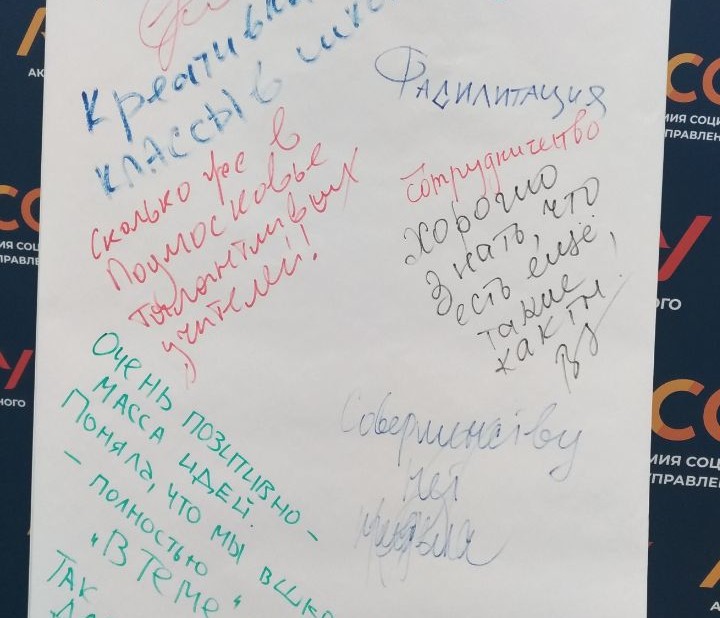 Креативные
классы в шко
Фасилитация
Сколько же в
Подмосковье
талантливых
учителей!
сотрудничество
Хорошо
знать, что
есть ещё
такие
как ты
Очень позитивно –
масса идей.
Поняла, что мы в шко
– полностью
"В теме"
Так
Совершенству
нет
предела
АСО
МИЯ СОЦИ
УПРАВЛЕН
У
НОГО